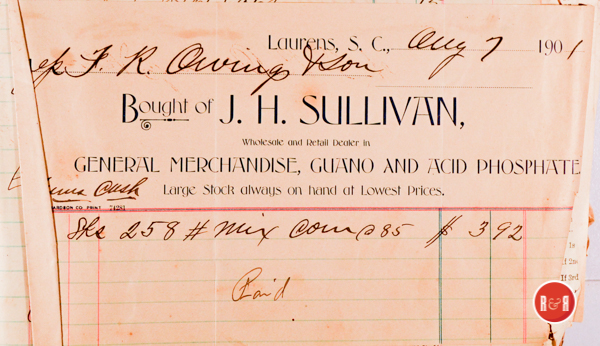 Laurens, S. C., Aug 7 1901
F. R. Owings & Son
Bought of J. H. SULLIVAN,
Wholesale and Retail Dealer in
GENERAL MERCHANDISE, GUANO AND ACID PHOSPHATE
Cash
Large Stock always on hand at Lowest Prices.
ARDSON CO PRINT 74281
Sks 258 # Mix Corn @ 85 $ 3 92
Paid
If 2nd
If 3rd
R&R